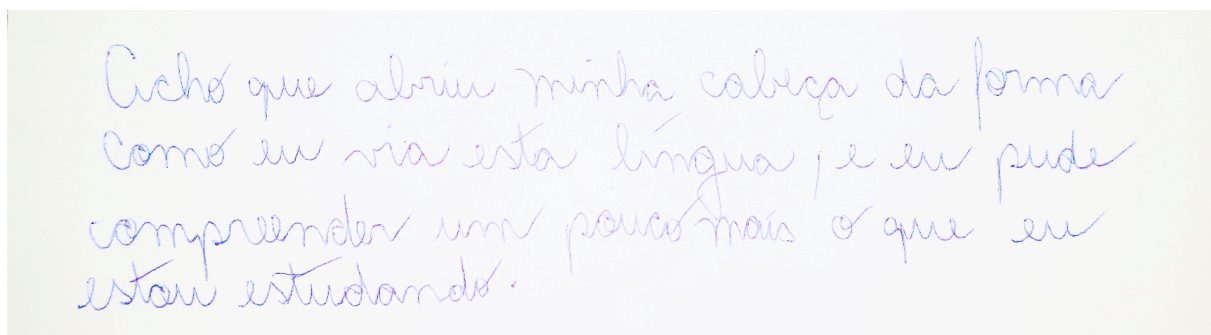 Acho que abriu minha cabeça da forma
como eu via esta língua, e eu pude
compreender um pouco mais o que eu
estou estudando.